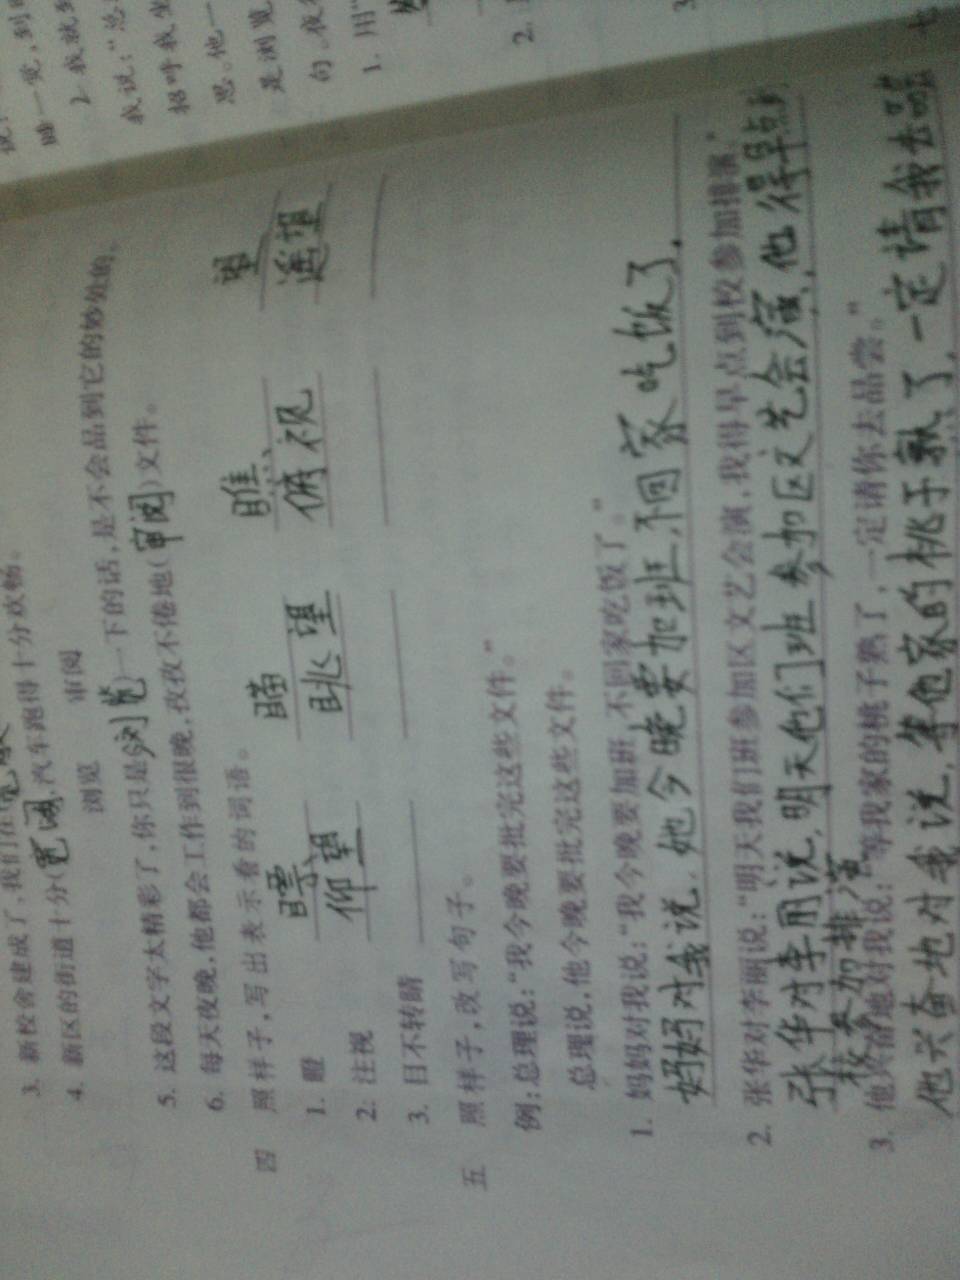 暗一觉,到
2. 我就
我说:“总
招呼我坐
思。他一
是浏览
句。夜
1. 用“
2.
3.
七
3. 新校舍建成了,我们在
4. 新区的街道十分(宽阔),汽车跑得十分欢畅。
浏览 审阅
5. 这段文字太精彩了,你只是(浏览)一下的话,是不会品到它的妙处的。
6. 每天夜晚,他都会工作到很晚,孜孜不倦地(审阅)文件。
四 照样子,写出表示看的词语。
1. 瞪 瞟 瞄 瞧 望
2. 注视 仰望 眺望 俯视 遥望
3. 目不转睛
五 照样子,改写句子。
例:总理说:“我今晚要批完这些文件。”
总理说,他今晚要批完这些文件。
1. 妈妈对我说:“我今晚要加班,不回家吃饭了。”
妈妈对我说,她今晚要加班,不回家吃饭了。
2. 张华对李丽说:“明天我们班参加区文艺会演,我得早点到校参加排演。”
张华对李丽说,明天他们班参加区文艺会演,他得早点到
校参加排演
3. 他兴奋地对我说:“等我家的桃子熟了,一定请你去品尝。”
他兴奋地对我说,等他家的桃子熟了,一定请我去品尝